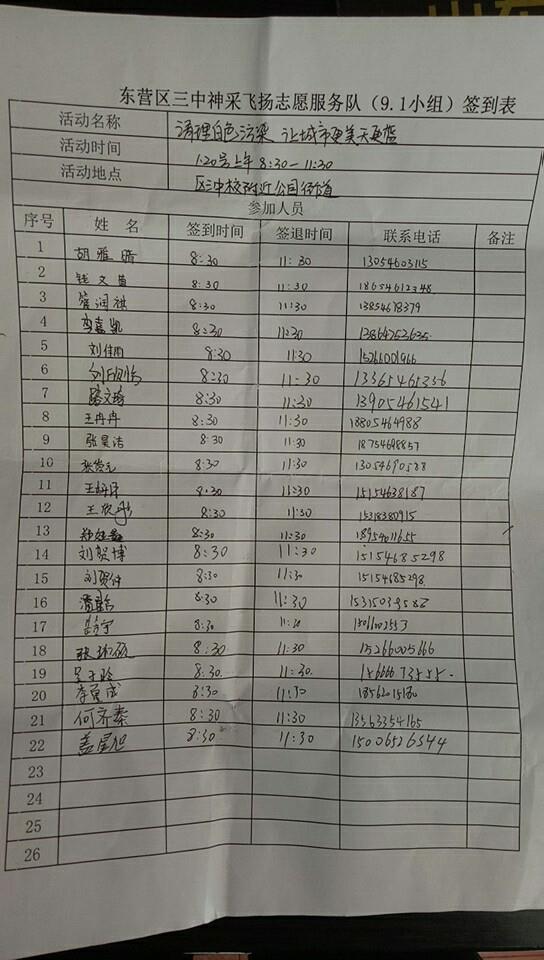 东营区三中神采飞扬志愿服务队（9.1小组）签到表
活动名称 清理白色污染 让城市更美天更蓝
活动时间 1.20号上午 8:30—11:30
活动地点 区三中校附近公园街道
参加人员
序号 姓 名 签到时间 签退时间 联系电话 备注
1 胡雅晴 8:30 11:30 13054603115
2 8:30 11:30 18654612348
3 8:30 11:30 13854678379
4 李嘉凯 8:30 11:30
5 刘佳雨 8:30 11:30 15266001966
6 8:30 11:30 13365465236
7 8:30 11:30 13905461541
8 王冉冉 8:30 11:30 18805464988
9 张昊洁 8:30 11:30 18754698857
10 8:30 11:30 13054690588
11 8:30 11:30 15154638187
12 8:30 11:30 15318380915
13 8:30 11:30 18954011655
14 刘贺博 8:30 11:30 15154685298
15 刘贺仲 8:30 11:30 15154685298
16 8:30 11:30
17 8:30 11:30
18 8:30 11:30 15266005666
19 8:30 11:30
20 8:30 11:30
21 何齐泰 8:30 11:30 13563354165
22 盖星旭 8:30 11:30 15006526344
23
24
25
26